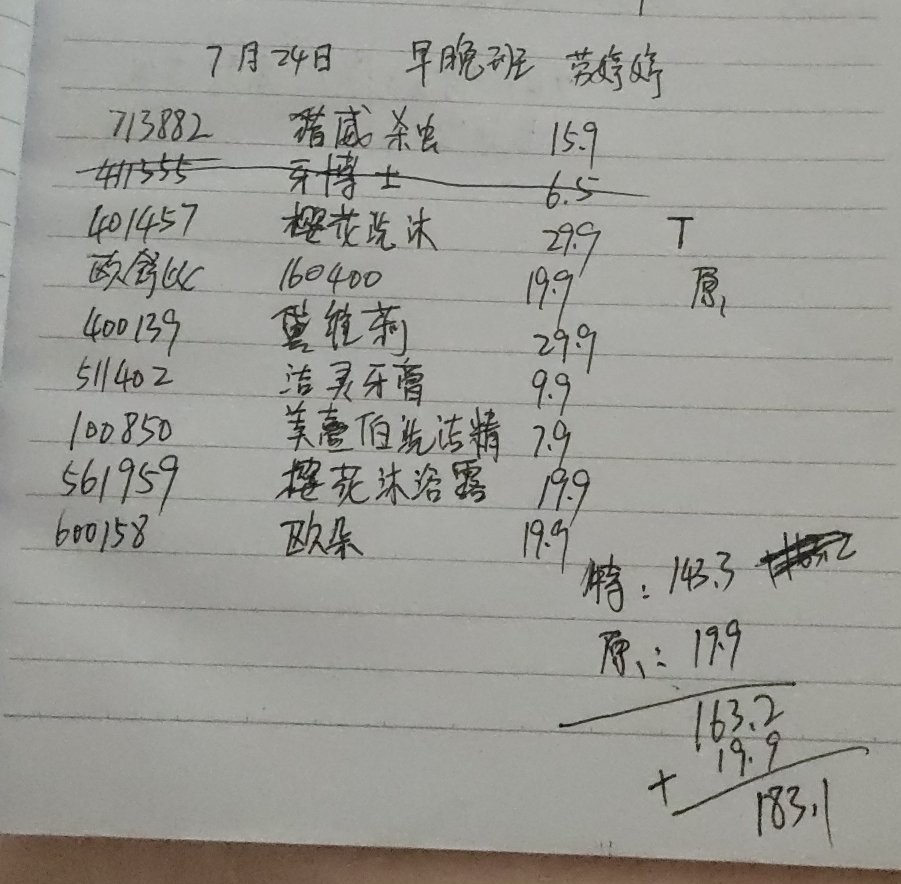 7月24日 早晚班 苏婷婷
713882 猎威杀虫 15.9
411555 牙博士 6.5
401457 樱花洗沐 29.9 T
欧舒CC 160400 19.9 原1
400139 黛维莉 29.9
511402 洁灵牙膏 9.9
100850 美壹伯洗洁精 7.9
561959 樱花沐浴露 19.9
600158 欧朵 19.9
特：143.3
原1：19.9
163.2
+ 19.9
183.1